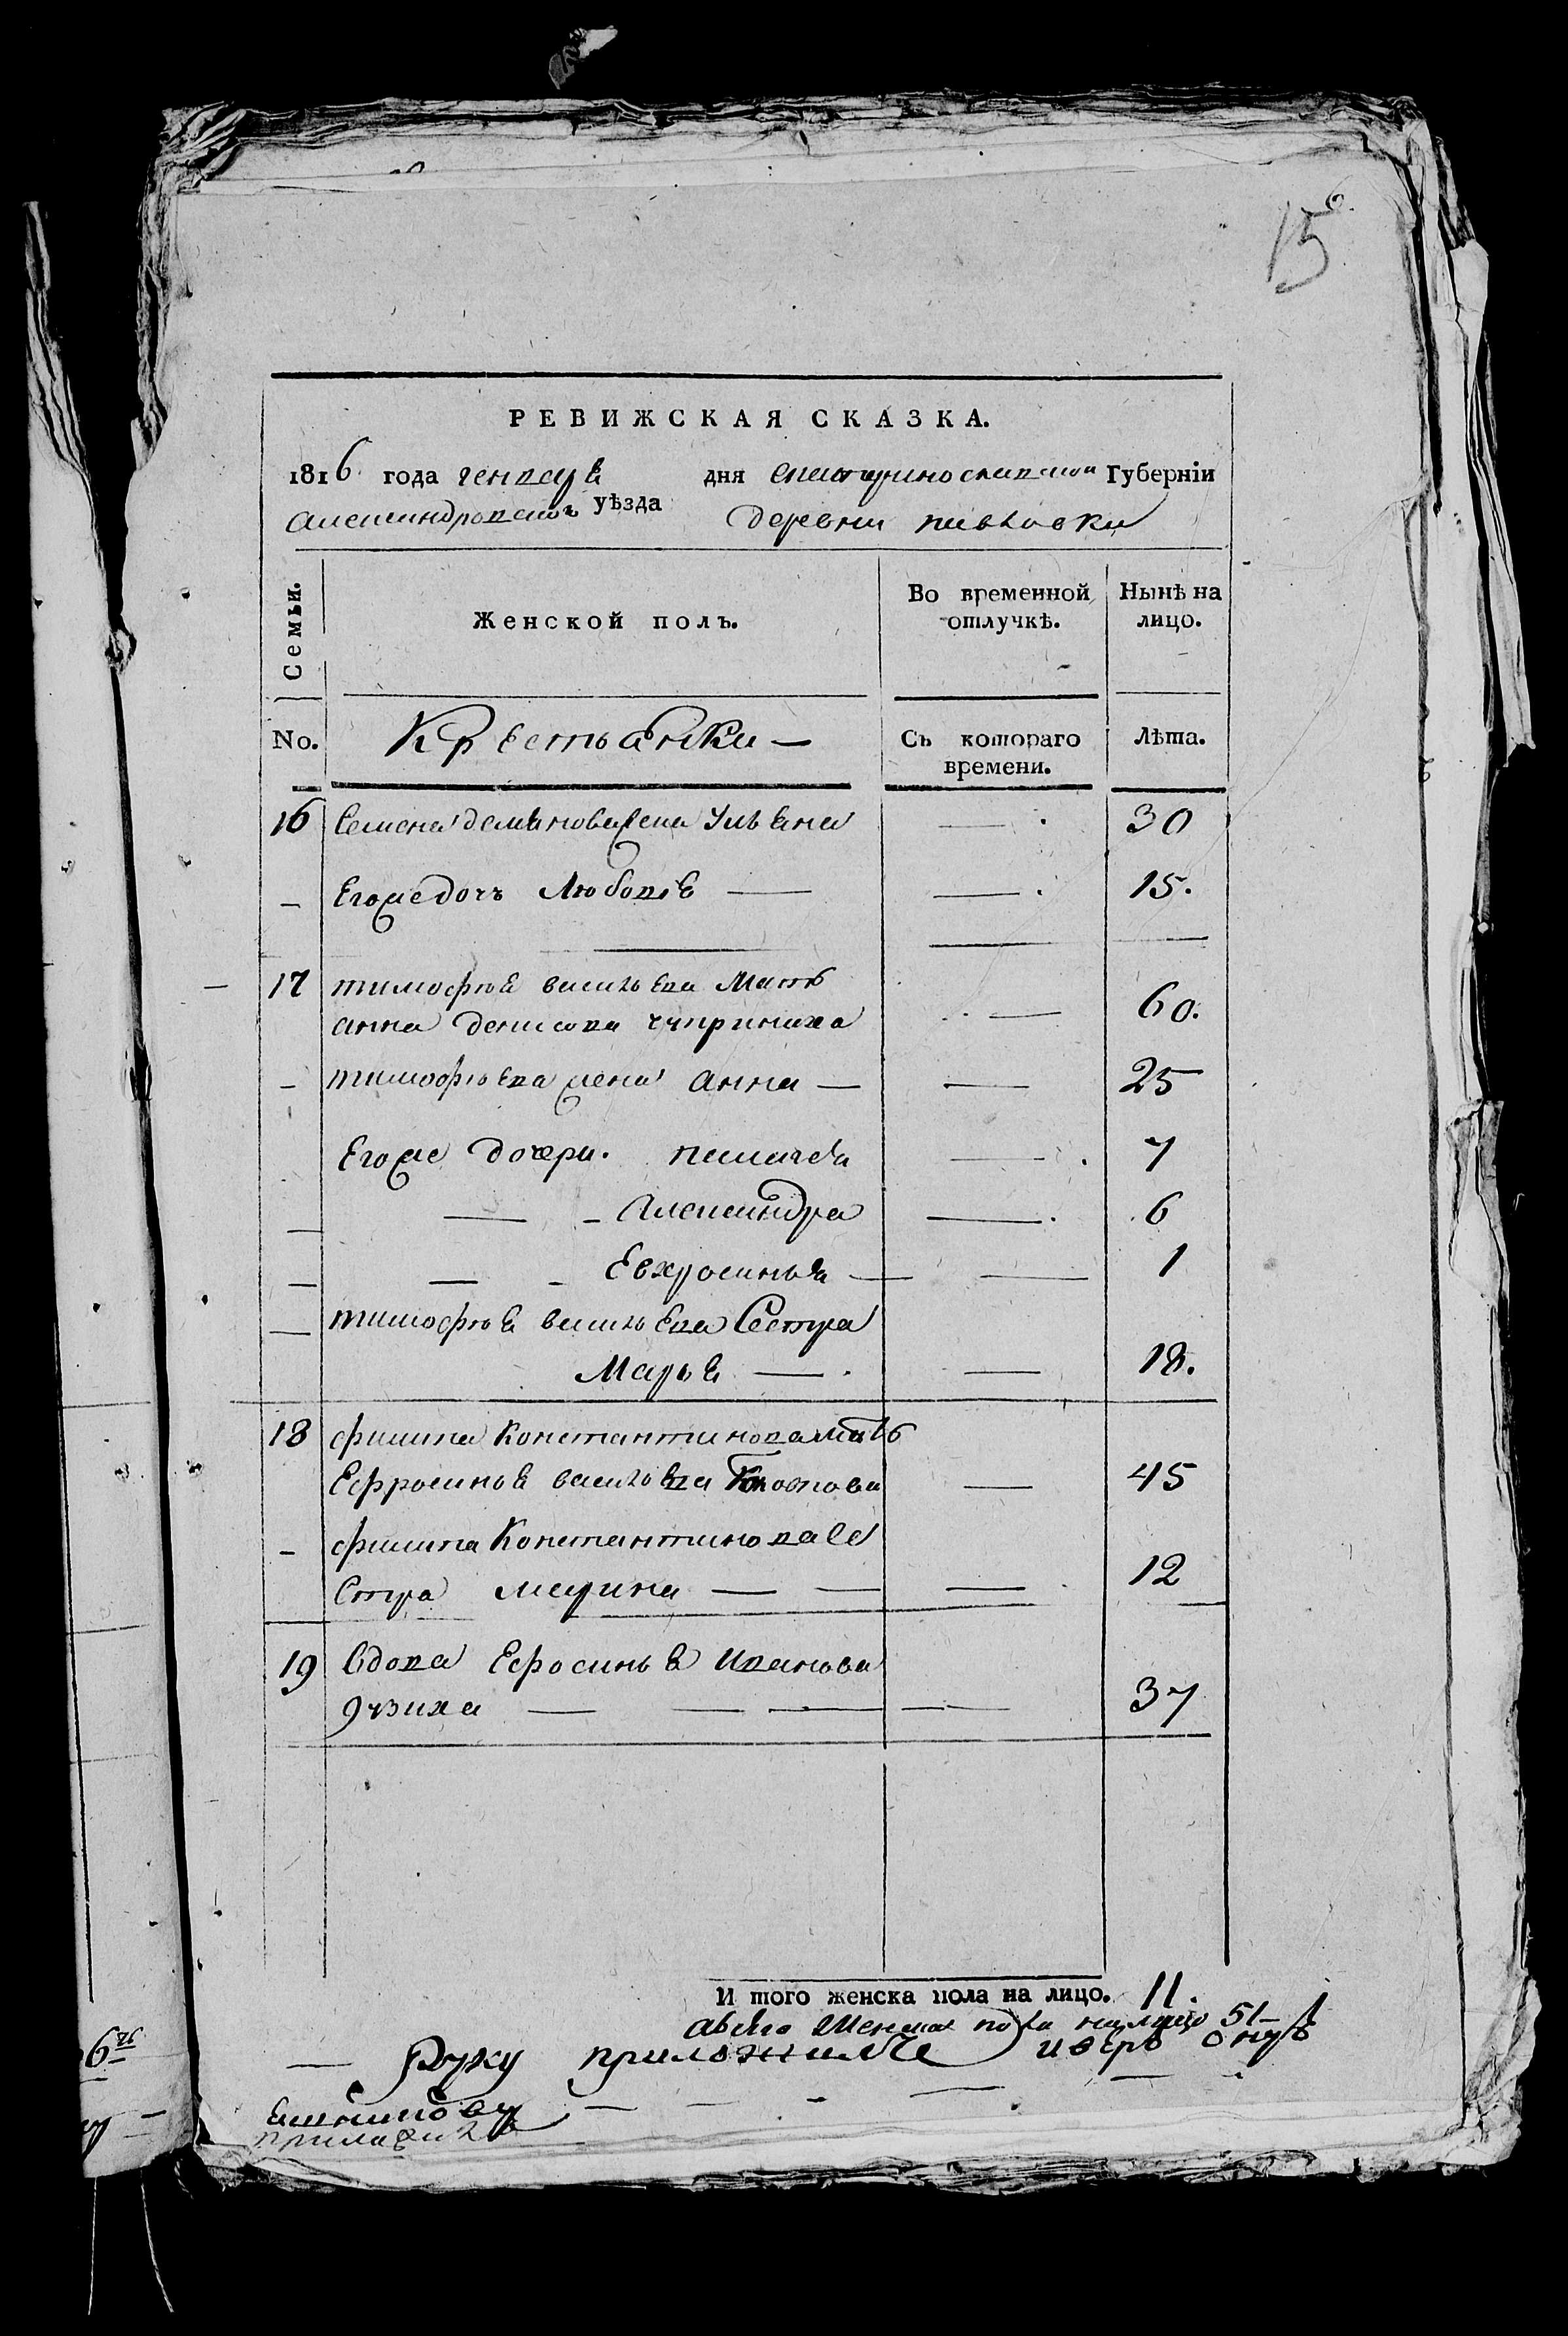 15
6.
РЕВИЖСКАЯ СКАЗКА.
1816 года генваря дня екатеринославской Губернїи
александровскаго уѣзда деревни
Семьи. Женской полъ. Во временной отлучкѣ. Нынѣ на лицо.
No. Крестьянки — Съ котораго времени. Лѣта.
16 Семена демянова жена Ульяна — 30
– Егоже дочь Любовь — — 15.
17 тимофея васильева Мать
анна денисова чуприниха — 60.
– тимофеева жена анна — — 25
Егоже дочери. пелагея — 7
— — – Александра — 6
— — – Евхросинья — — 1
— тимофея васильева Сестра
Марья — — 18.
18 филипа Константинова мать
Ефросинья васильева — 45
– филипа Константинова Се
стра марина — — — 12
19 вдова Ефросинья иванова
— — — — 37
И того женска пола на лицо. 11.
а всего женска пола на лицо 51–
— Руку приложилъ
6